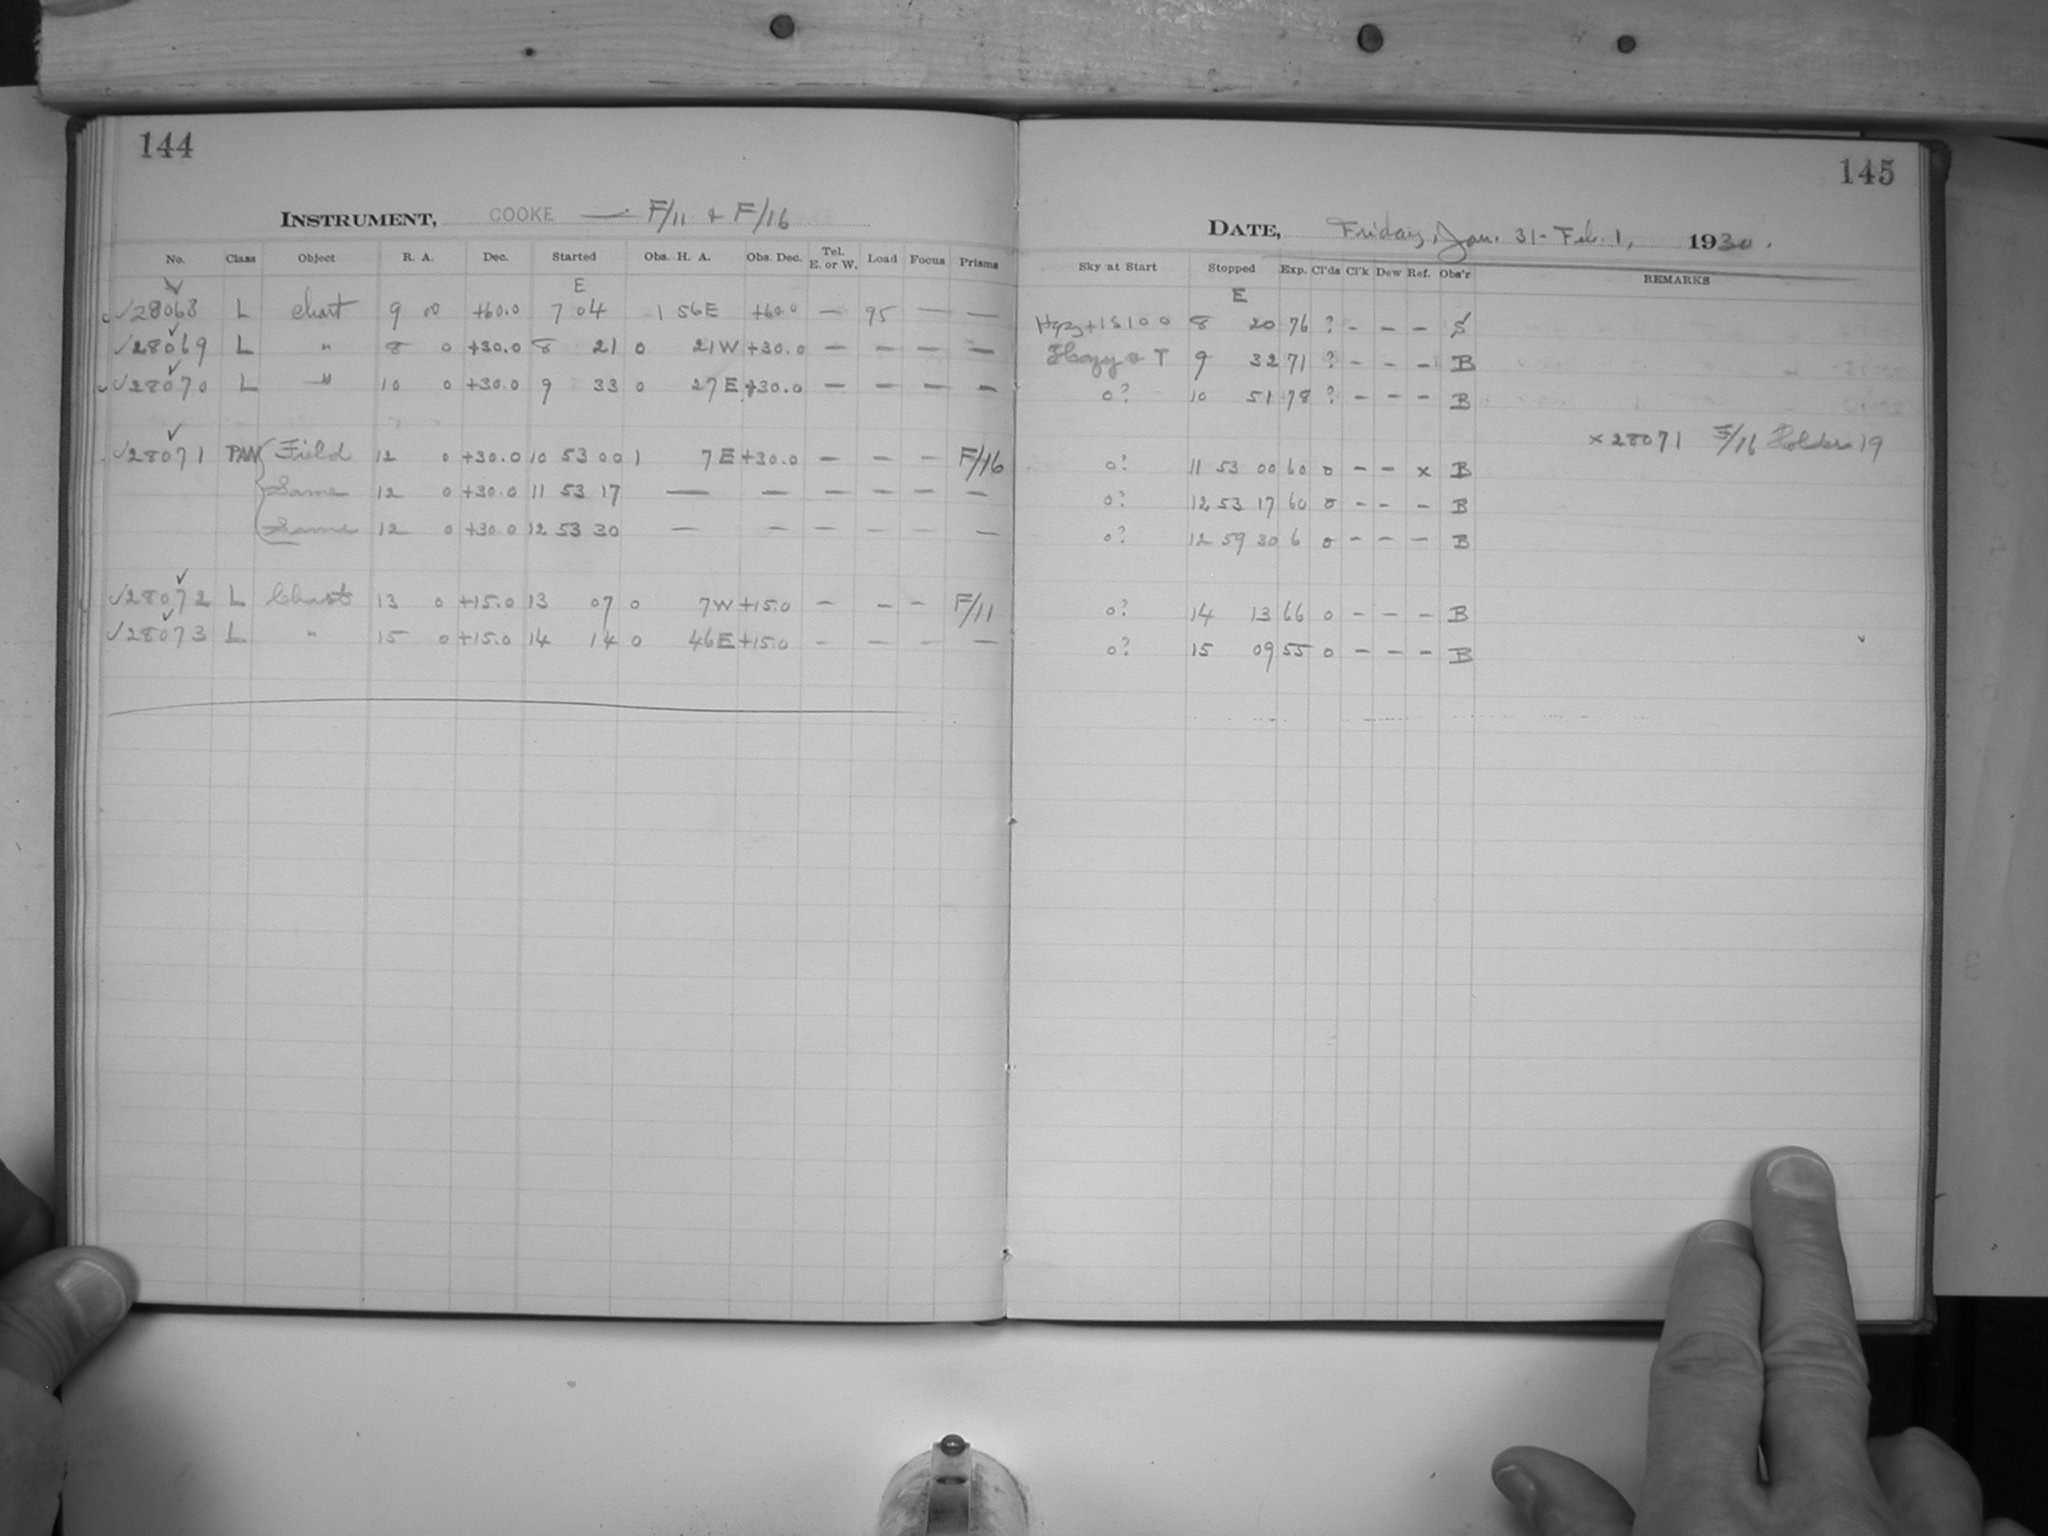 144
INSTRUMENT, COOKE — F/11 & F/16
No. Class Object R. A. Dec. Started Obs. H. A. Obs. Dec. Tel. E. or W. Load Focus Prisms
E
✓28068 L chart 9 00 +60.0 7 04 1 56E +60.0 — 95 — —
✓28069 L " 8 0 +30.0 8 21 0 21W +30.0 — — — —
✓28070 L " 10 0 +30.0 9 33 0 27E +30.0 — — — —
✓28071 PAN Field 12 0 +30.0 10 53 00 1 7E +30.0 — — — F/16
Same 12 0 +30.0 11 53 17 — — — — — —
Same 12 0 +30.0 12 53 30 — — — — — —
✓28072 L Chart 13 0 +15.0 13 07 0 7W +15.0 — — — F/11
✓28073 L " 15 0 +15.0 14 14 0 46E +15.0 — — — —
145
DATE, Friday, Jan. 31 - Feb. 1, 1930.
Sky at Start Stopped Exp. Cl'ds Cl'k Dew Ref. Obs'r REMARKS
E
8 20 76 ? - - - S
Hazy & T 9 32 71 ? - - - B
0? 10 51 78 ? - - - B
x 28071 F/16 Holder 19
0? 11 53 00 60 0 - - x B
0? 12 53 17 60 0 - - - B
0? 12 59 30 6 0 - - - B
0? 14 13 66 0 - - - B
0? 15 09 55 0 - - - B